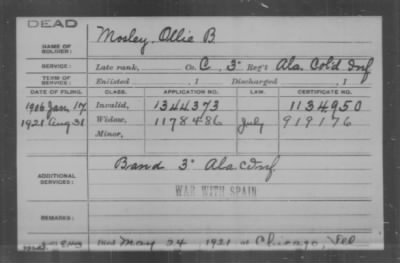 DEAD
NAME OF SOLDIER: Mosley, Ollie B.
SERVICE: Late rank, Co. C, 3" Reg't Ala. Col'd Inf
TERM OF SERVICE: Enlisted , 1 Discharged , 1
DATE OF FILING. CLASS. APPLICATION NO. LAW. CERTIFICATE NO.
1906 Jan 17 Invalid, 1344373 1134950
1921 Aug 31 Widow, 1178486 July 919176
Minor,
ADDITIONAL SERVICES: Band 3" Ala Inf
WAR WITH SPAIN
REMARKS:
Died May 24, 1921 at Chicago, Ill